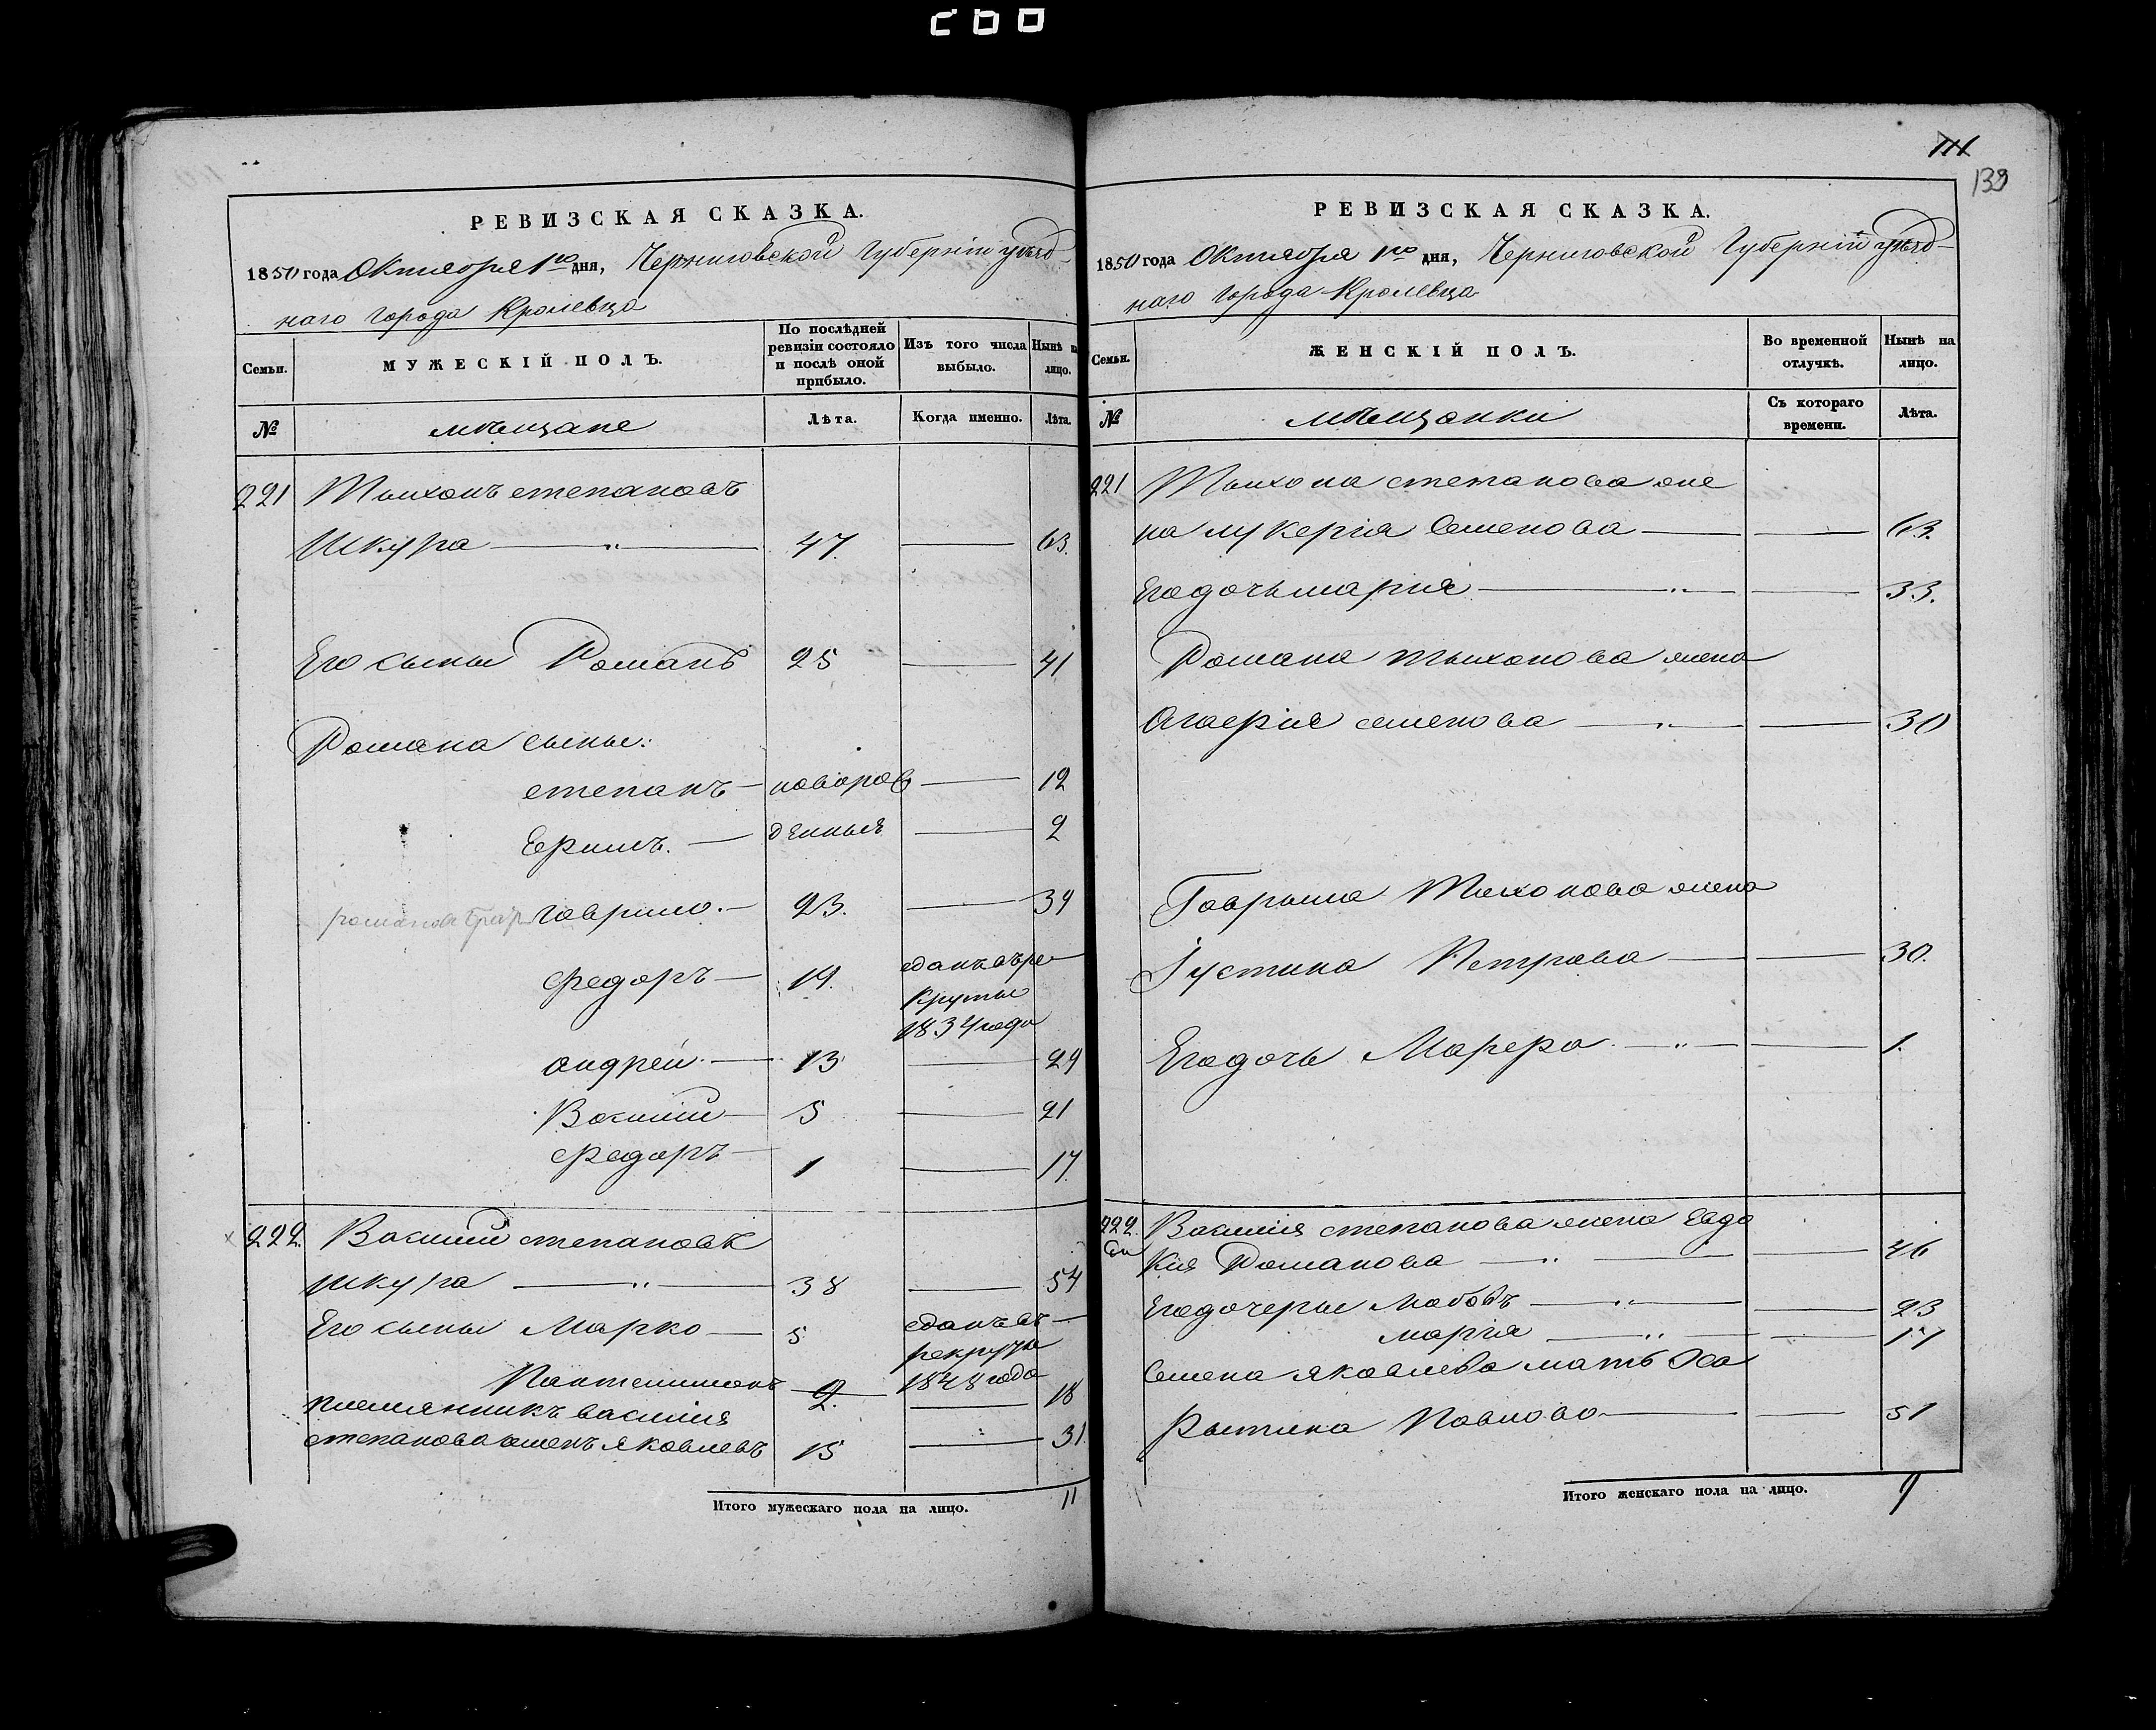 РЕВИЗСКАЯ СКАЗКА.
1850 года Октября 1го дня, Черниговской Губерніи уѣзд-
наго города Кролевца
Семьи.
МУЖЕСКІЙ ПОЛЪ.
По послѣдней ревизіи состояло и послѣ оной прибыло.
Изъ того числа выбыло.
Нынѣ на лицо.
№
мѣщане
Лѣта.
Когда именно.
Лѣта.
221 Тыихонъ степановъ
Шкура — " — 47 — 63.
Его сыны Романъ 25 — 41
Романа сыны:
степанъ — новорож — 12
Ефимъ. — денныя — 2
романа бра Гаврило. — 23. — 39
Федоръ — 19. сданъ въ ре-
круты
1834 года
андрей — 13 — 29
Василий — 5 — 21
Федоръ — 1 — 17.
222. Василий степановъ
Шкура — " — 38 — 54
Его сыны Марко — 5 сданъ въ —
рекруты
1848 года
Пантелимонъ — 2. — 18
племянникъ василия
степанова семенъ яковлевъ 15 — 31.
Итого мужескаго пола на лицо. 11
111
139
РЕВИЗСКАЯ СКАЗКА.
1850 года Октября 1го дня, Черниговской Губерніи уѣзд-
наго города Кролевца
Семьи.
ЖЕНСКІЙ ПОЛЪ.
Во временной отлучкѣ.
Нынѣ на лицо.
№
мѣщанки
Съ котораго времени.
Лѣта.
221 Тыихона степанова же
на лукерія Семенова — — 63.
Его дочь марія — " — — 33.
Романа тыихонова жена
Агаерия семенова — " — — 30
Гаврыла Тихонова жена
Іустина Петрова — — 30.
Его дочь Марера — " — — 1.
222. Василия степанова жена Евдо
кия Романова — " — — 46
Его дочеры любовъ — " — — 23
марія — " — — 17
Семена яковлева мать
Павлова — — 51
Итого женскаго пола на лицо. 9